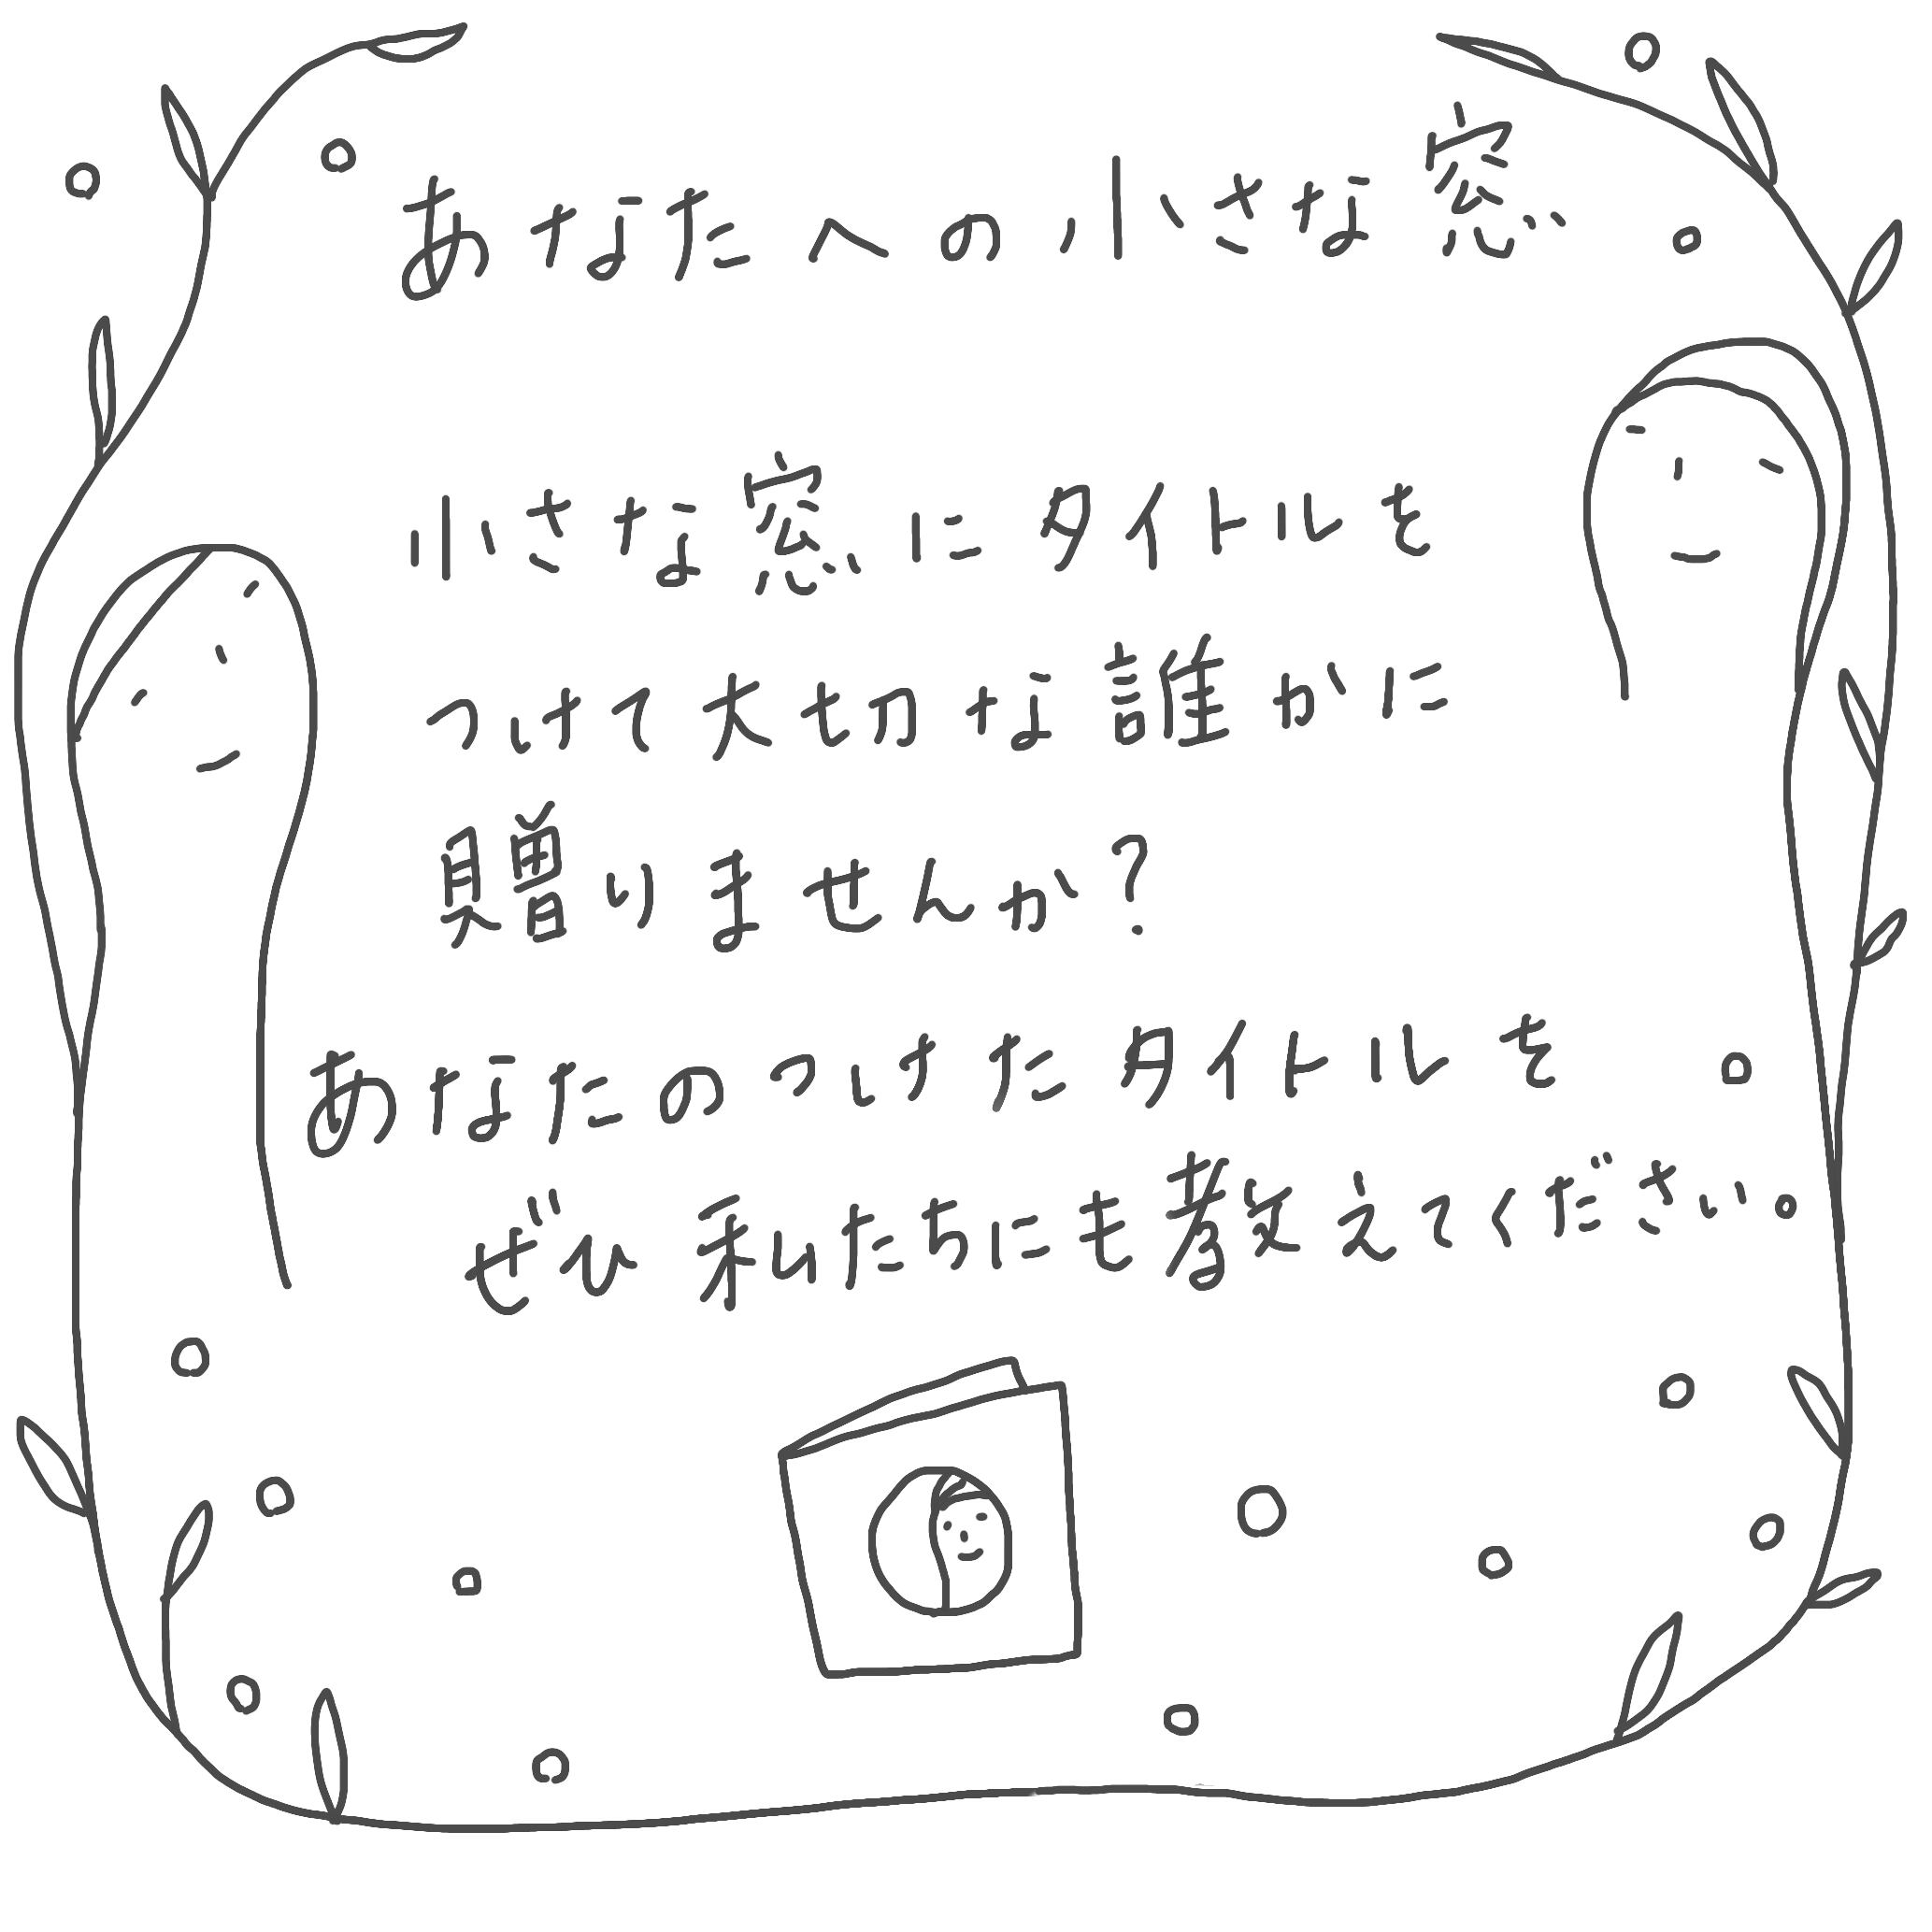 あなたへの小さな窓
小さな窓にタイトルを
つけて大切な誰かに
贈りませんか?
あなたのつけたタイトルを
ぜひ私たちにも教えてください。